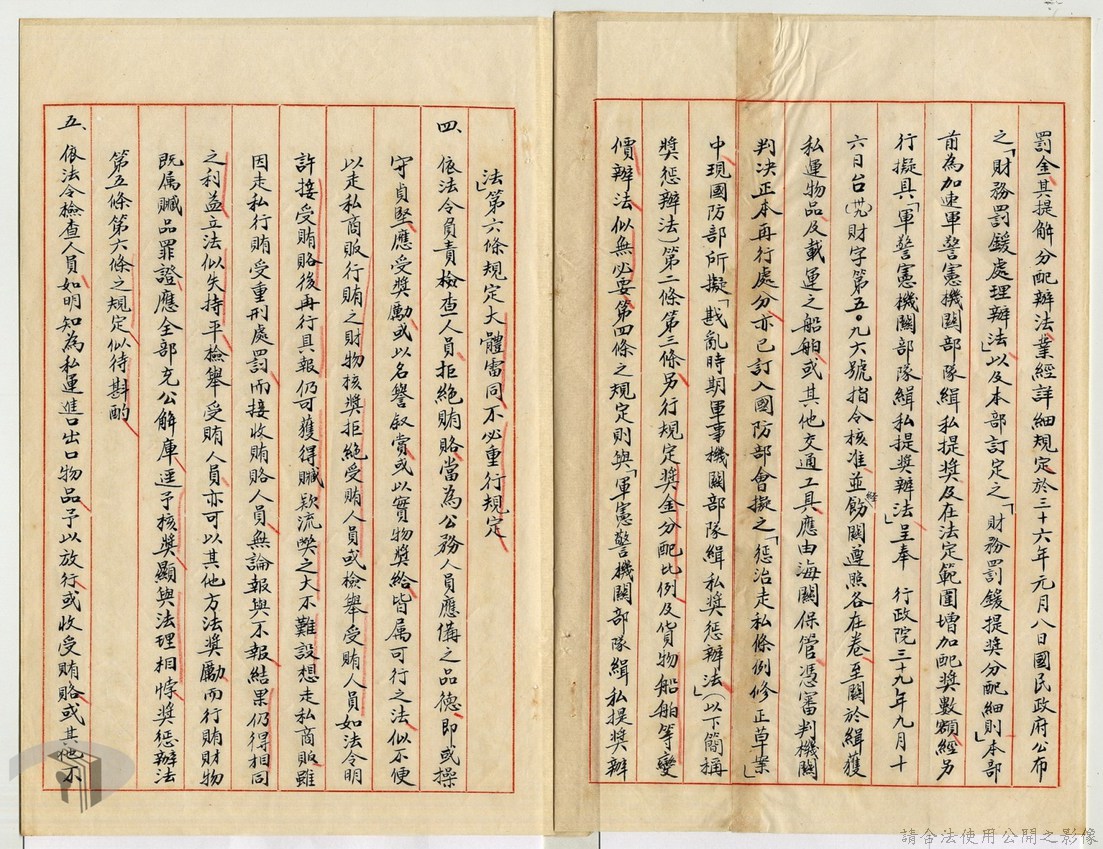 罰金其提解分配辦法業經詳細規定於三十六年元月八日國民政府公布
之「財務罰鍰處理辦法」以及本部訂定之「財務罰鍰提獎分配細則」本部
前為加速軍警憲機關部隊緝私提獎及在法定範圍增加配獎數額經另
行擬具「軍警憲機關部隊緝私提獎辦法」呈奉 行政院三十九年九月十
六日台(卅九)財字第五〇九六號指令核准並飭關遵照各在卷至關於緝獲
私運物品及載運之船舶或其他交通工具應由海關保管憑審判機關
判決正本再行處分亦已訂入國防部會擬之「惩治走私條例修正草案」
中現國防部所擬「戡亂時期軍事機關部隊緝私獎惩辦法」(以下簡稱
獎惩辦法)第二條第三條另行規定獎金分配比例及貨物船舶等變
價辦法似無必要第四條之規定則與「軍憲警機關部隊緝私提獎辦
法」第六條規定大體雷同不必重行規定
四、依法令負責檢查人員拒絕賄賂當為公務人員應備之品德即或操
守貞堅應受獎勵或以名譽叙賞或以實物獎給皆属可行之法似不便
以走私商販行賄之財物核獎拒絕受賄人員或檢舉受賄人員如法令明
許接受賄賂後再行具報仍可獲得贓款流弊之大不難設想走私商販雖
因走私行賄受重刑處罰而接收賄賂人員無論報與不報結果仍得相同
之利益立法似失持平檢舉受賄人員亦可以其他方法獎勵而行賄財物
既属贓品罪證應全部充公解庫逕予核獎顯與法理相悖獎惩辦法
第五條第六條之規定似待斟酌
五、依法令檢查人員如明知為私運進口出口物品予以放行或收受賄賂或其他不
請合法使用公開之影像